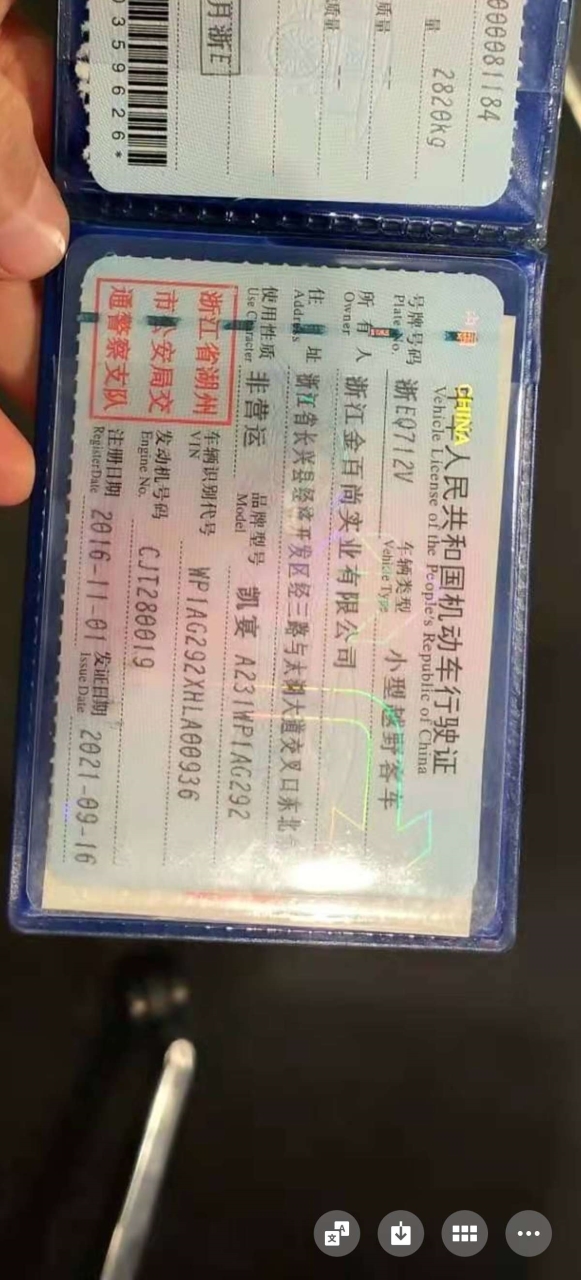 000081184
量 2820kg
质量 --
质量 --
月浙E
0359626*
中国 CHINA
人民共和国机动车行驶证
Vehicle License of the People's Republic of China
号牌号码 浙EQ712V 车辆类型 小型越野客车
Plate No. Vehicle Type
所有人 浙江金百尚实业有限公司
Owner
住址 浙江省长兴县经济开发区经三路与太湖大道交叉口东北
Address
使用性质 非营运 品牌型号 凯宴 A231WP1AG292
Use Character Model
浙江省湖州
市公安局交
通警察支队
车辆识别代号 WP1AG292XHLA00936
VIN
发动机号码 CJT280019
Engine No.
注册日期 2016-11-01 发证日期 2021-09-16
Register Date Issue Date